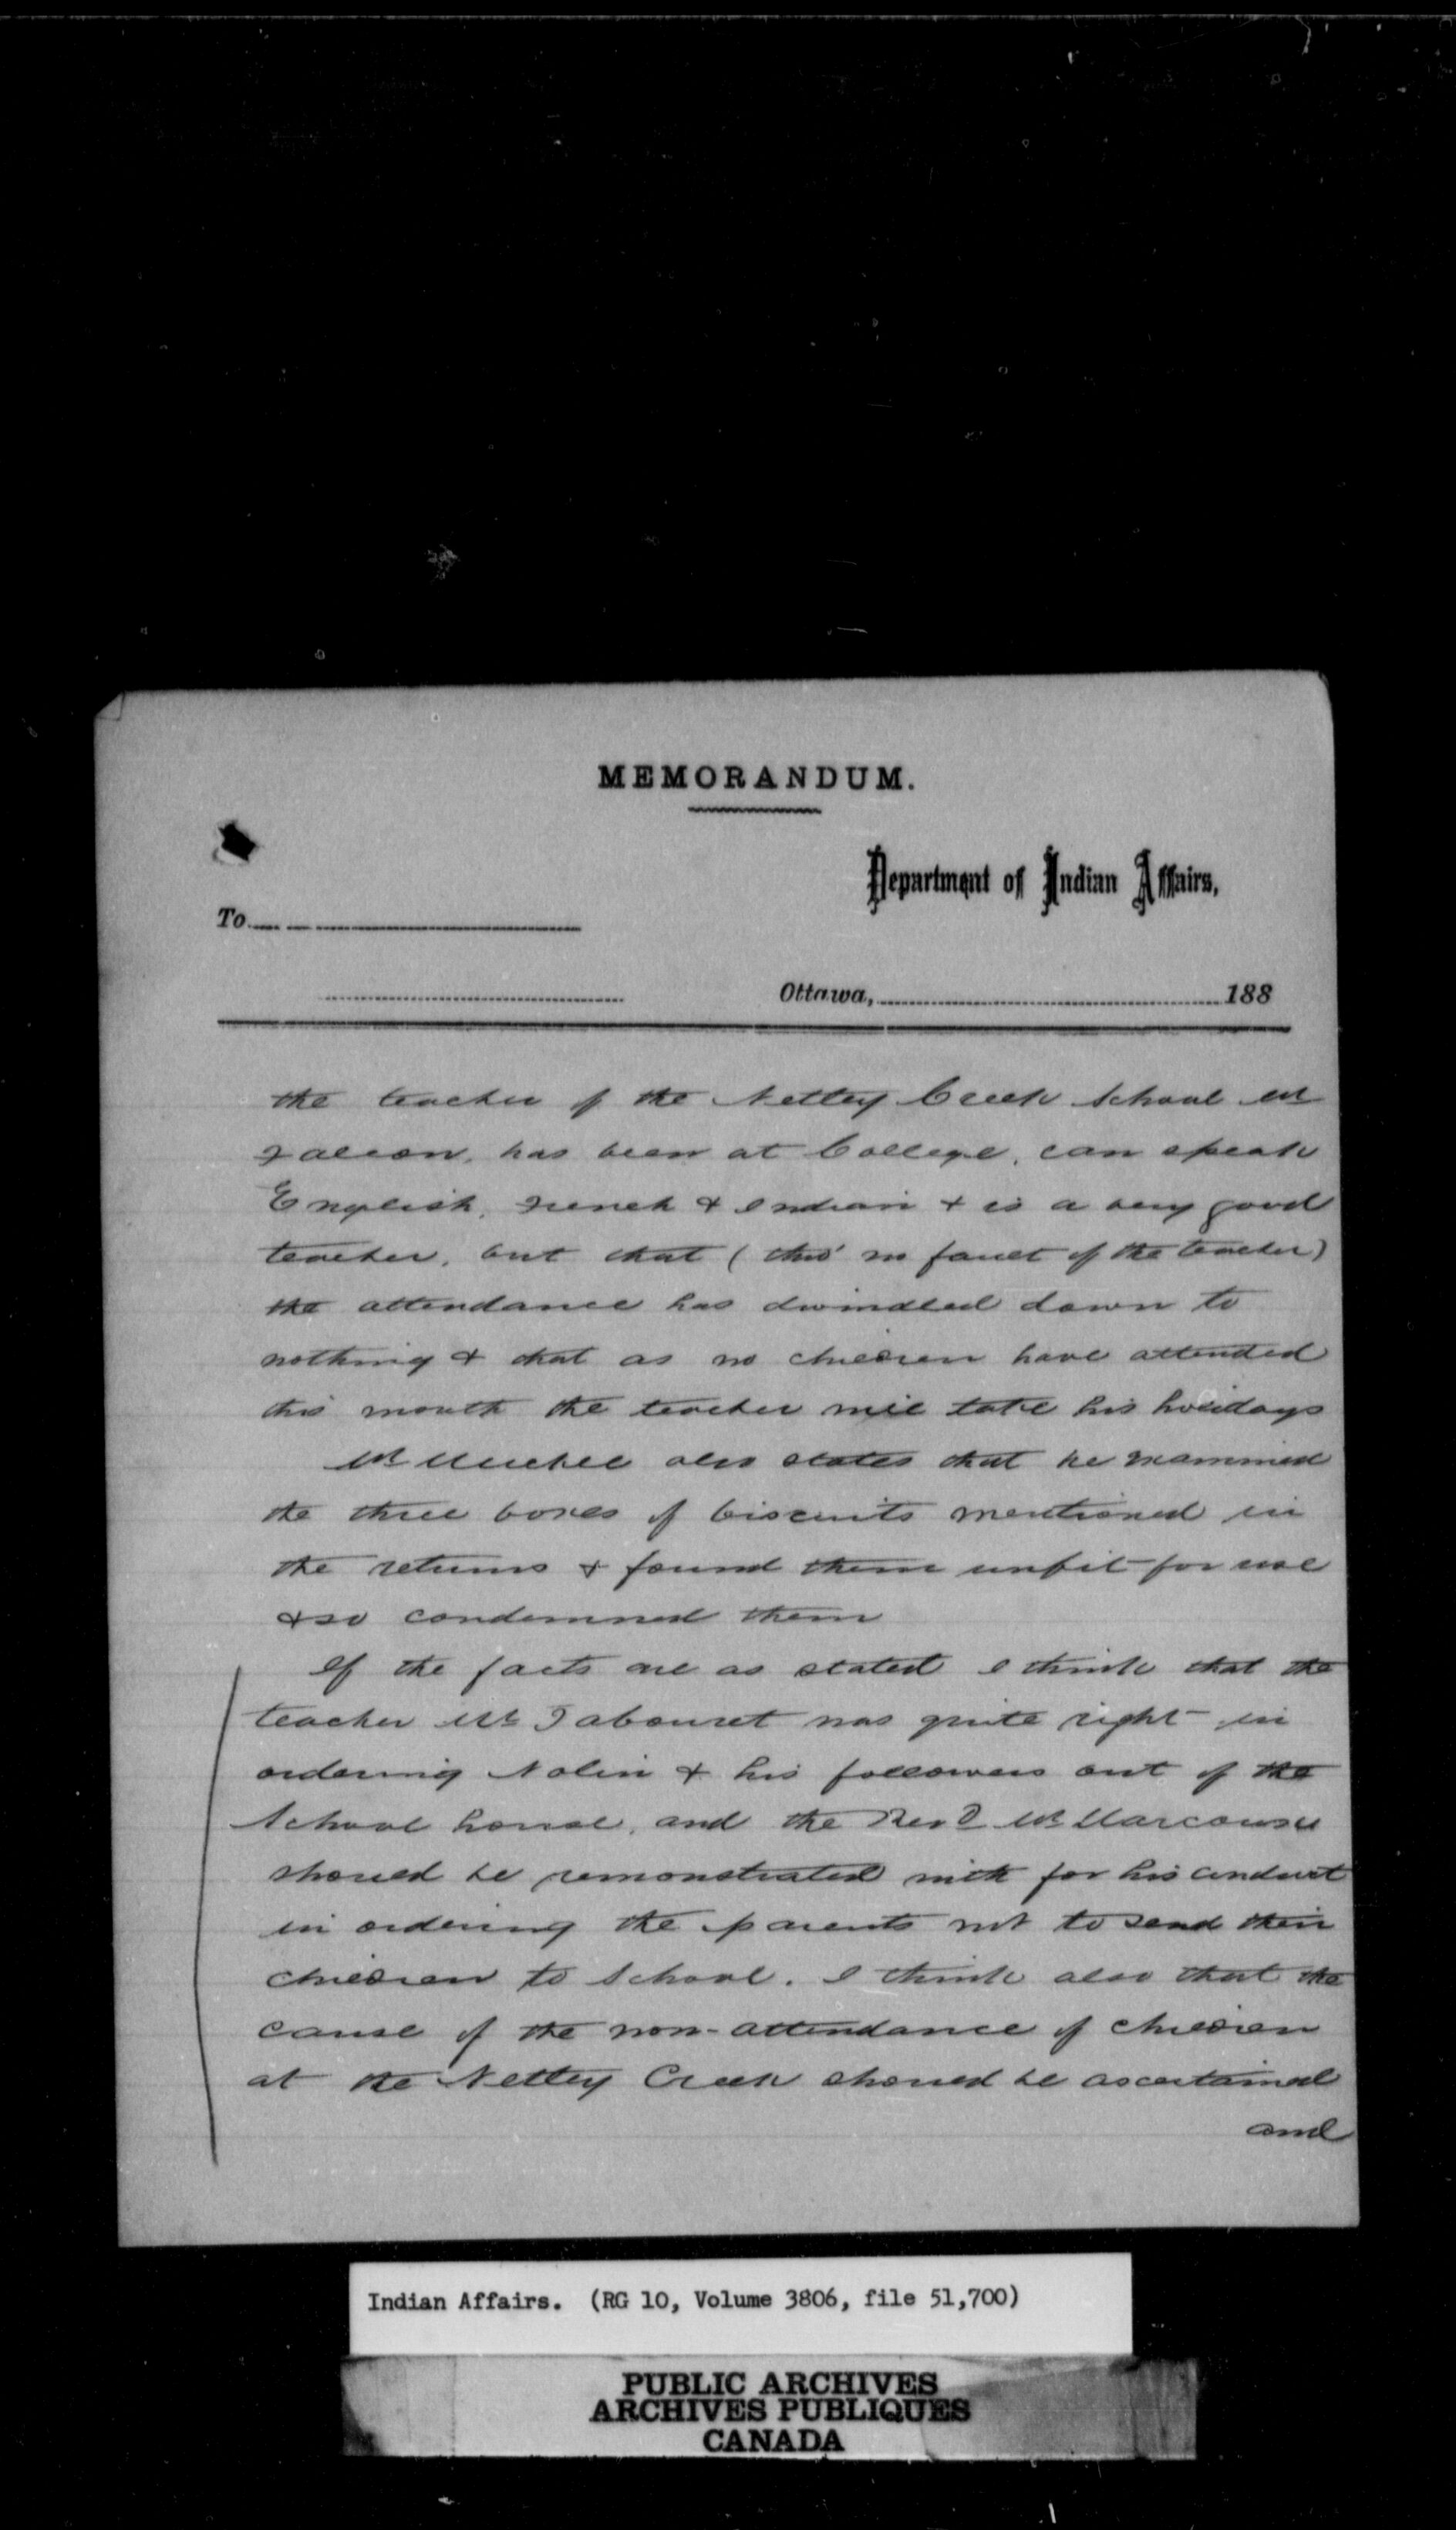 MEMORANDUM.
Department of Indian Affairs,
To
Ottawa, 188
the teacher of the Netley Creek School Mr
Falcon, has been at College, can speak
English, French & Indian & is a very good
teacher, but that (tho' no fault of the teacher)
the attendance has dwindled down to
nothing & that as no children have attended
this month the teacher will take his holidays
Mr Muckle also states that he examined
the three boxes of biscuits mentioned in
the returns & found them unfit for use
& so condemned them
If the facts are as stated I think that the
teacher Mr Tabouret was quite right in
ordering Nolin & his followers out of the
School house, and the Revd Mr Marcoux
should be remonstrated with for his conduct
in ordering the parents not to send their
children to School. I think also that the
cause of the non-attendance of children
at the Netley Creek should be ascertained
and
Indian Affairs. (RG 10, Volume 3806, file 51,700)
PUBLIC ARCHIVES
ARCHIVES PUBLIQUES
CANADA